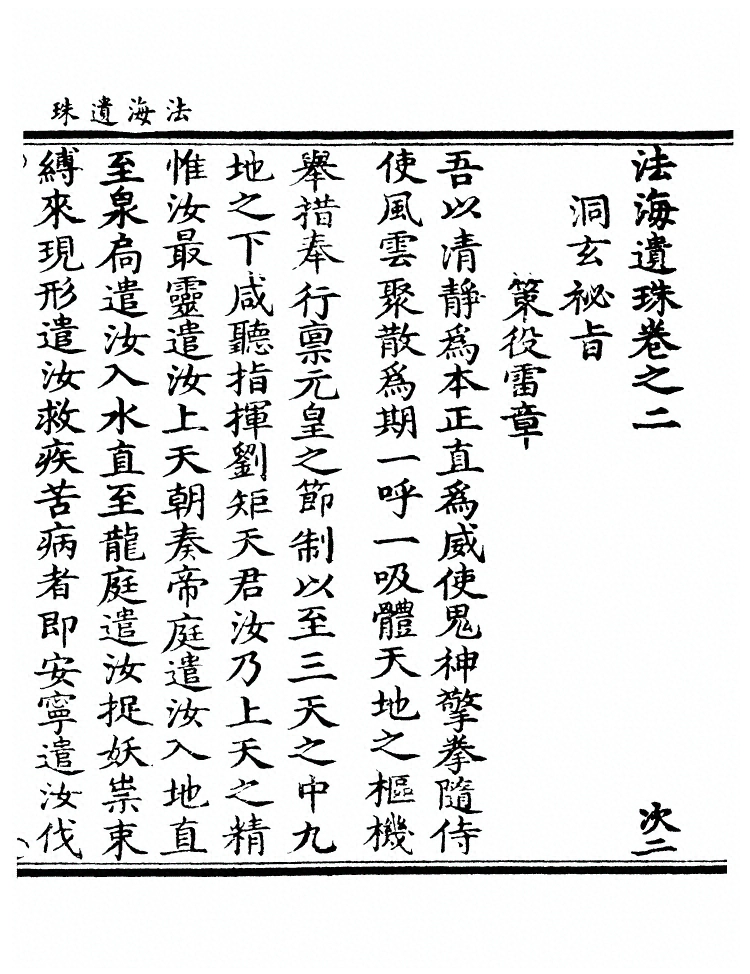 法海遺珠
法海遺珠卷之二 次二
洞玄祕旨
策役雷章
吾以清靜爲本正直爲威使鬼神擎拳隨侍
使風雲聚散爲期一呼一吸體天地之樞機
舉措奉行禀元皇之節制以至三天之中九
地之下咸聽指揮劉矩天君汝乃上天之精
惟汝最靈遣汝上天朝奏帝庭遣汝入地直
至泉扃遣汝入水直至龍庭遣汝捉妖祟束
縛來現形遣汝救疾苦病者即安寧遣汝伐